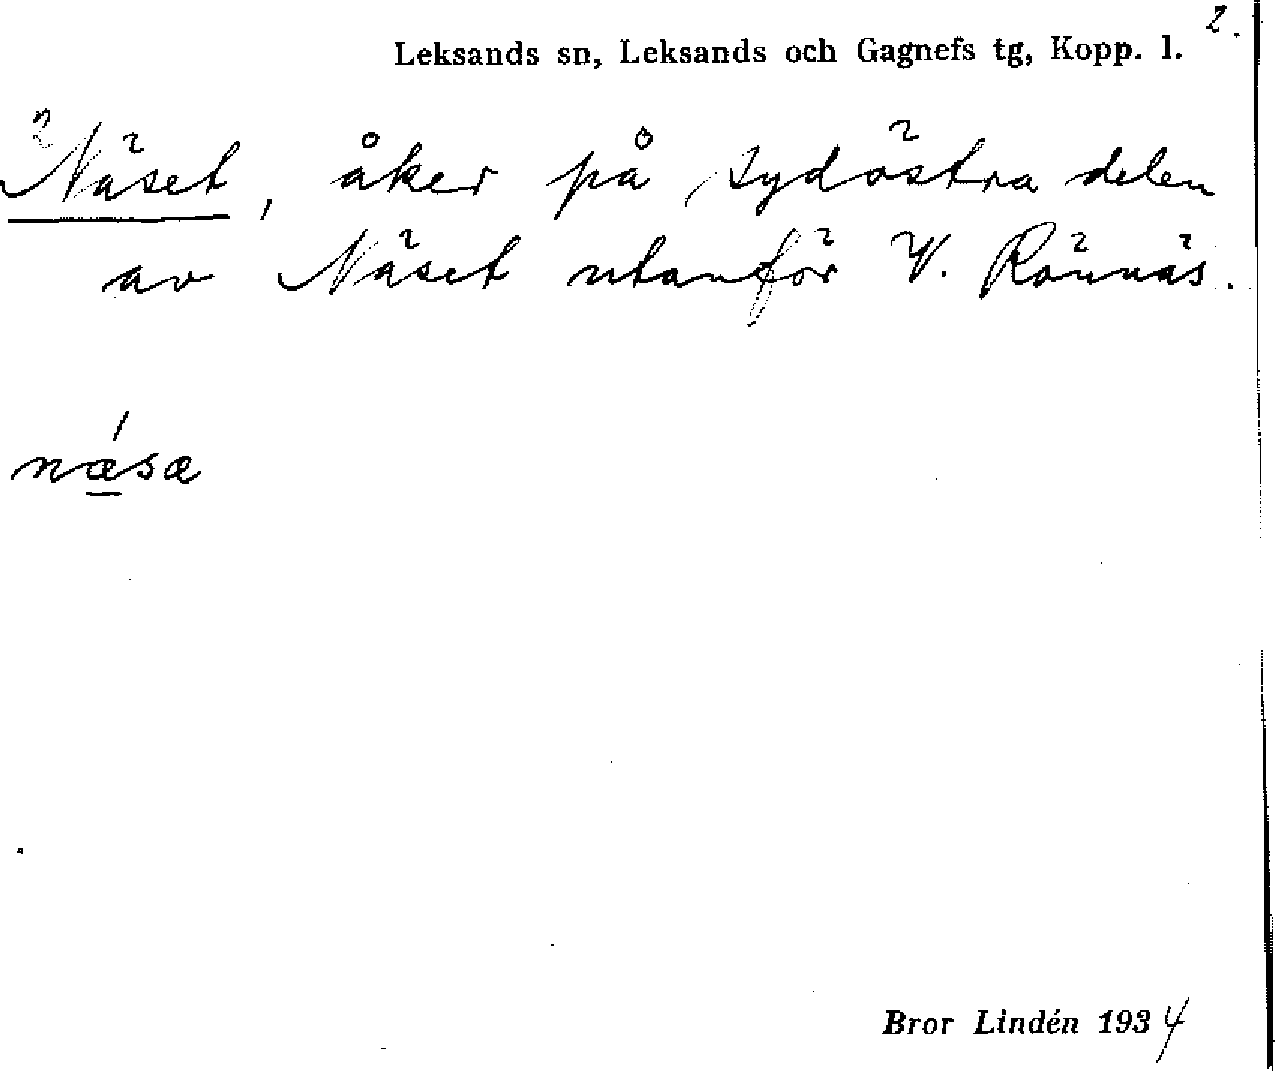 2.
Leksands sn, Leksands och Gagnefs tg, Kopp. l.
Näset, åker på sydöstra delen
av Näset utanför V. Rönnäs.
nǽsæ
Bror Lindén 1934